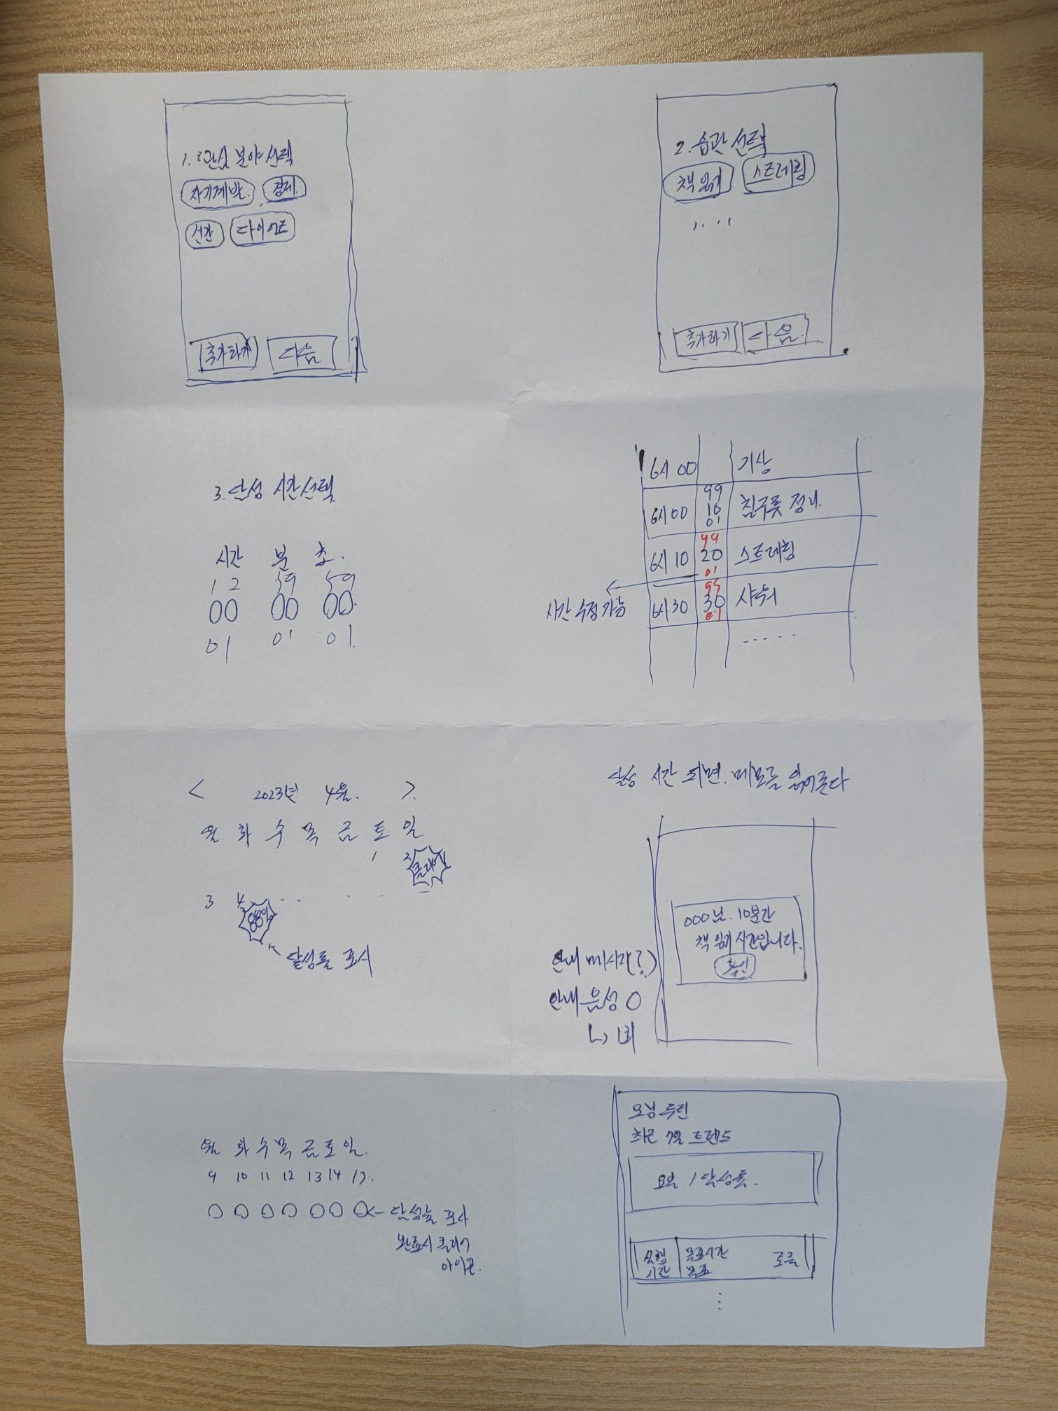 1. 관심 분야 선택
자기계발 경제
건강 다이어트
추가하기 다음
2. 습관 선택
책 읽기 스트레칭
....
추가하기 다음
3. 달성 시간 선택
시간 분 초.
12 59 59
00 00 00
01 01 01
6시 00 기상
6시 00 99 10 01 침구류 정리
6시 10 99 20 01 스트레칭
6시 30 95 30 01 샤워
.....
시간 수정 가능
< 2023년 4월. >
월 화 수 목 금 토 일
1 2 클리어
3 4 .. . .
88%
달성률 표시
달성 시간 되면. 메모를 읽어준다
000님. 10분간
책 읽기 시간입니다.
확인
안내 메시지(?)
안내 음성 O
1회
월 화 수 목 금 토 일.
9 10 11 12 13 14 15.
달성률 표시
완료시 클리어
아이콘.
모닝 루틴
최근 7일 트렌드
요일 / 달성률.
실행 시간 목표시간 목표